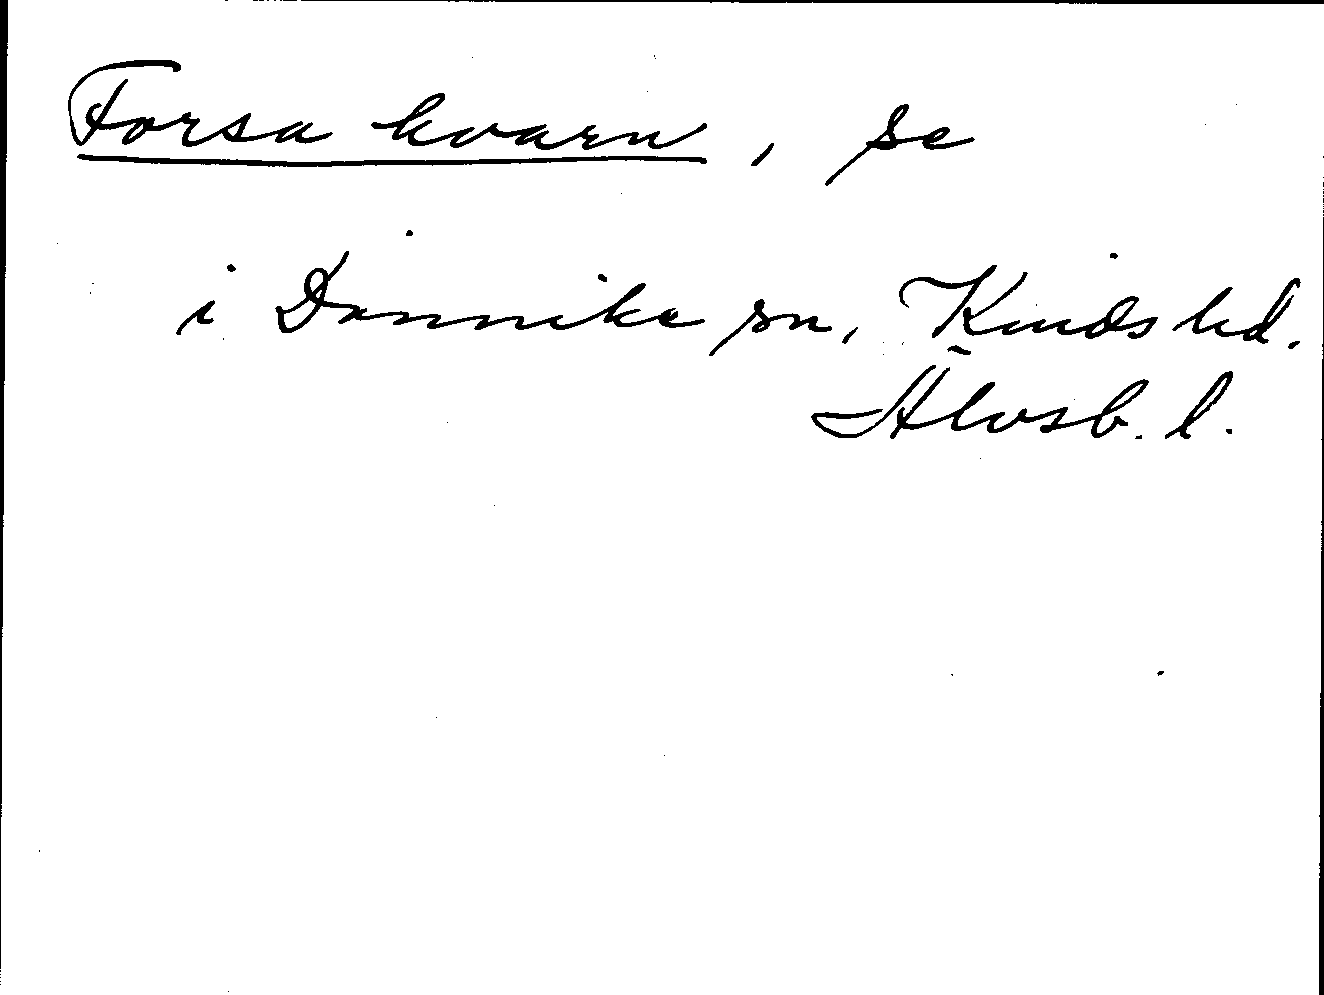 Forsa kvarn, se
i Dannike sn, Kinds hd.
Älvsb. l.